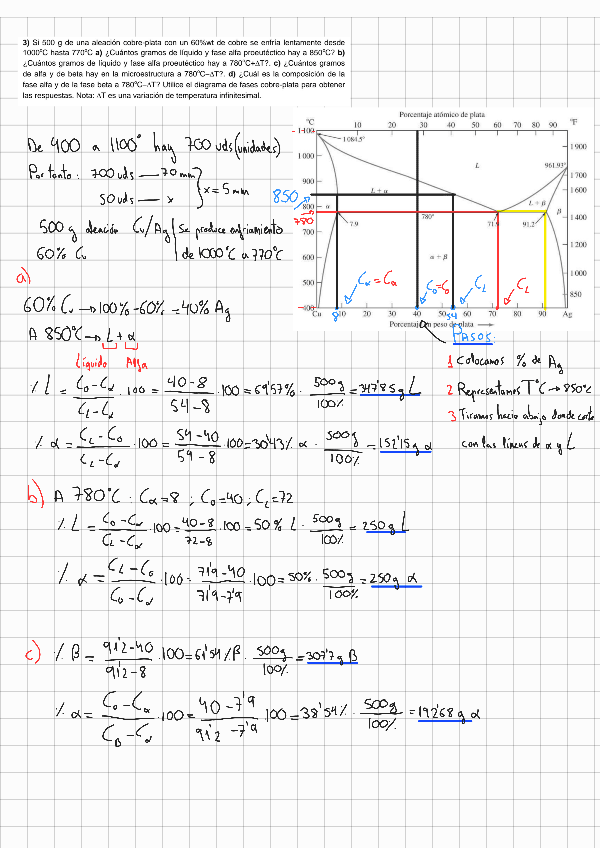 3) Si 500 g de una aleación cobre-plata con un 60%wt de cobre se enfría lentamente desde
1000ºC hasta 770ºC a) ¿Cuántos gramos de líquido y fase alfa proeutéctico hay a 850ºC? b)
¿Cuántos gramos de líquido y fase alfa proeutéctico hay a 780ºC+ΔT?. c) ¿Cuántos gramos
de alfa y de beta hay en la microestructura a 780ºC–ΔT?. d) ¿Cuál es la composición de la
fase alfa y de la fase beta a 780ºC–ΔT? Utilice el diagrama de fases cobre-plata para obtener
las respuestas. Nota: ΔT es una variación de temperatura infinitesimal.
De 400 a 1100° hay 700 uds (unidades)
Por tanto: 700 uds — 70 mm
50 uds — x
x = 5 mm
500 g aleación Cu/Ag
60% Cu
Se produce enfriamiento
de 1000°C a 770°C
Porcentaje atómico de plata
°C 10 20 30 40 50 60 70 80 90 °F
1100
1 084.5°
1900
1 000
L
961.93°
1700
900
1600
850
L + α
L + β
800
α
β
780
780°
7.9
71.9
91.2
1400
700
600
α + β
1200
500
1 000
Cα = Cα
C₀ = C₀
CL
CL
850
400
Cu 10 20 30 40 50 60 70 80 90 Ag
8
40
54
Porcentaje en peso de plata
PASOS
1 Colocamos % de Ag
2 Representamos T°C → 850°C
3 Tiramos hacia abajo donde corte
con las líneas de α y L
a)
60% Cu → 100% - 60% = 40% Ag
A 850°C → L + α
Líquido Alfa
% L = C₀-Cα / CL-Cα · 100 = 40-8 / 54-8 · 100 = 69'57% · 500g / 100% = 347'85 g L
% α = CL-C₀ / CL-Cα · 100 = 54-40 / 54-8 · 100 = 30'43% α · 500g / 100% = 152'15 g α
b) A 780°C : Cα=8 ; C₀=40 ; CL=72
% L = C₀-Cα / CL-Cα · 100 = 40-8 / 72-8 · 100 = 50% L · 500g / 100% = 250 g L
% α = CL-C₀ / C₀-Cα · 100 = 71'9-40 / 71'9-7'9 · 100 = 50% · 500g / 100% = 250 g α
c) % β = 91'2-40 / 91'2-8 · 100 = 61'54% β · 500g / 100% = 307'7 g β
% α = C₀-Cα / Cβ-Cα · 100 = 40-7'9 / 91'2-7'9 · 100 = 38'54% · 500g / 100% = 192'68 g α